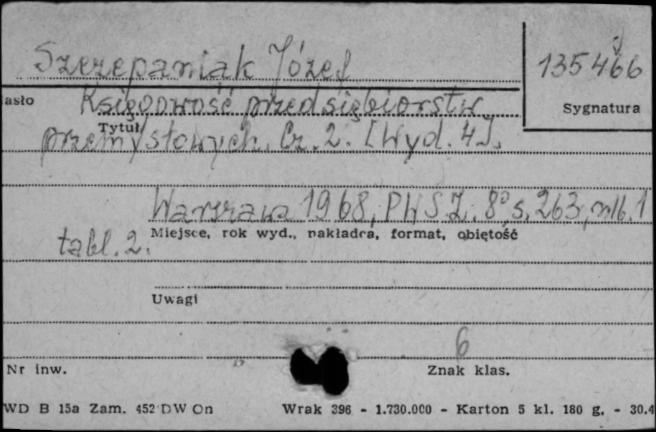 Szczepaniak Józef
135466
asło
Księgowość przedsiębiorstw
Sygnatura
Tytuł
przemysłowych. Cz. 2. [Wyd. 4].
Warszawa 1968, PWSZ. 8°, s. 263, nlb. 1
Miejsce, rok wyd., nakładca, format, objętość
tabl. 2.
Uwagi
6
Nr inw.
Znak klas.
WD B 15a Zam. 452 DW On
Wrak 396 - 1.730.000 - Karton 5 kl. 180 g. - 30.4